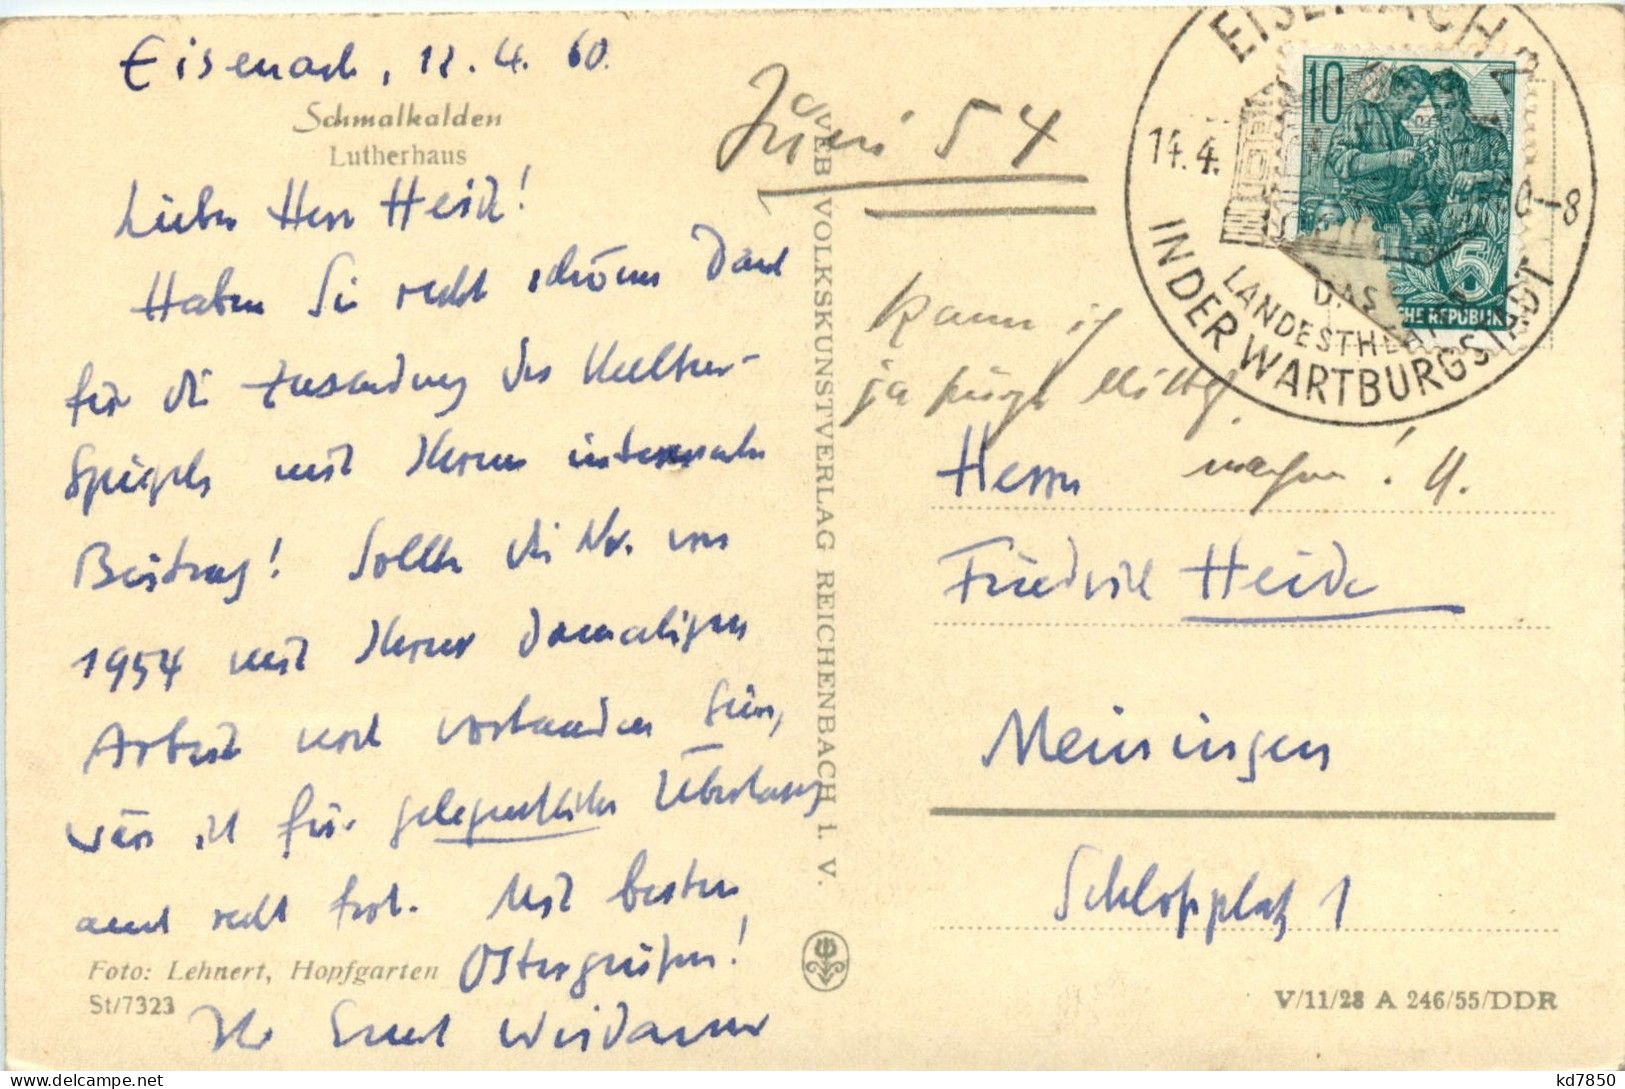 Eisenach, 12. 4. 60.
Schmalkalden
Lutherhaus
Lieber Herr Heide!
Haben Sie recht schönen Dank
für die Zusendung des Kultur-
Spiegels mit Ihrem interessanten
Beitrag! Sollte die Nr. von
1954 mit Ihrer damaligen
Arbeit noch vorhanden sein,
wär ich für gelegentliche Überlassung
auch recht froh. Mit besten
Ostergrüßen!
Ihr Ernst
Foto: Lehnert, Hopfgarten
St/7323
VEB VOLKSKUNSTVERLAG REICHENBACH I. V.
Juni 54
kann ich
ja
machen!
EISENACH 2
14.4.
0-8
DAS
LANDESTHEATER
IN DER WARTBURGSTADT
10
5
CHE REPUBLIK
Herrn
Friedrich Heide
Meiningen
Schloßplatz 1
V/11/28 A 246/55/DDR
kd7850